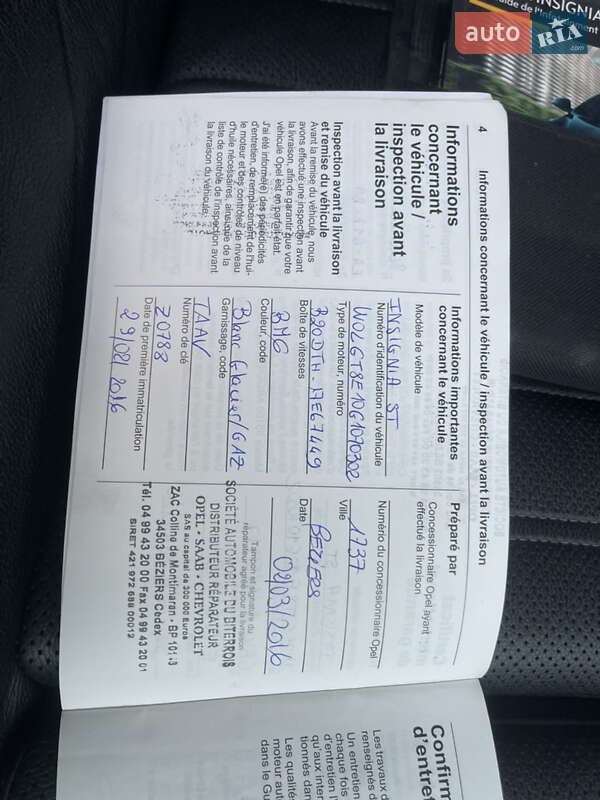 INSIGNIA
auto
RIA
.com
4
Informations concernant le véhicule / inspection avant la livraison
Informations
concernant
le véhicule /
inspection avant
la livraison
Inspection avant la livraison
et remise du véhicule
Avant la remise du véhicule, nous
avons effectué une inspection avant
la livraison, afin de garantir que votre
véhicule Opel est en parfait état.
J'ai été informé(e) des périodicités
d'entretien, de remplacement de l'hui-
le moteur et des contrôles de niveau
d'huile nécessaires, ainsi que de la
liste de contrôle de l'inspection avant
la livraison du véhicule.
Informations importantes
concernant le véhicule
Modèle de véhicule
INSIGNIA ST
Numéro d'identification du véhicule
W0LGT8E10G1070302
Type de moteur, numéro
B20DTH-
Boîte de vitesses
BM6
Couleur, code
Blanc Glacier/GAZ
Garnissage, code
TAAV
Numéro de clé
Z0788
Date de première immatriculation
29/02/2016
Préparé par
Concessionnaire Opel ayant
effectué la livraison
Numério du concessionnaire Opel
1737
Ville
BEZIERS
Date
02/03/2016
Tampon et signature du
réparateur agréé pour la livraison
SOCIÉTÉ AUTOMOBILE DU BITERROIS
DISTRIBUTEUR RÉPARATEUR
OPEL - SAAB - CHEVROLET
SAS au capital de 300 000 Euros
ZAC Colline de Montimaran - BP
34503 BÉZIERS Cedex
Tél. 04 99 43 20 00 Fax 04 99 43 20 01
SIRET 421 972 688 00012
Confirm
d'entre
Les travaux d
renseignés d
Un entretien
chaque fois
d'entretien l'
qu'aux inter
tionnés dan
Les qualité
moteur aut
dans le Gu